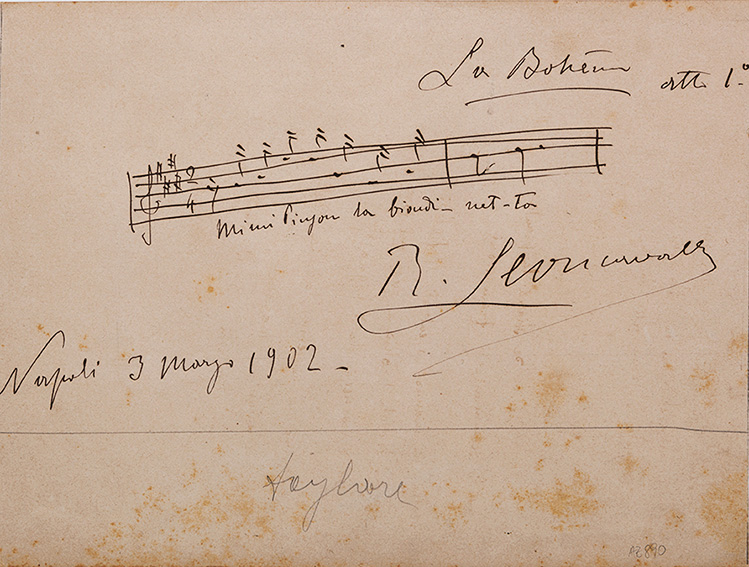 La Bohème atto 1º
2
4
Mimi Pinson la biondi-net-ta
R. Leoncavallo
Napoli 3 Marzo 1902 -
tagliare
A2890